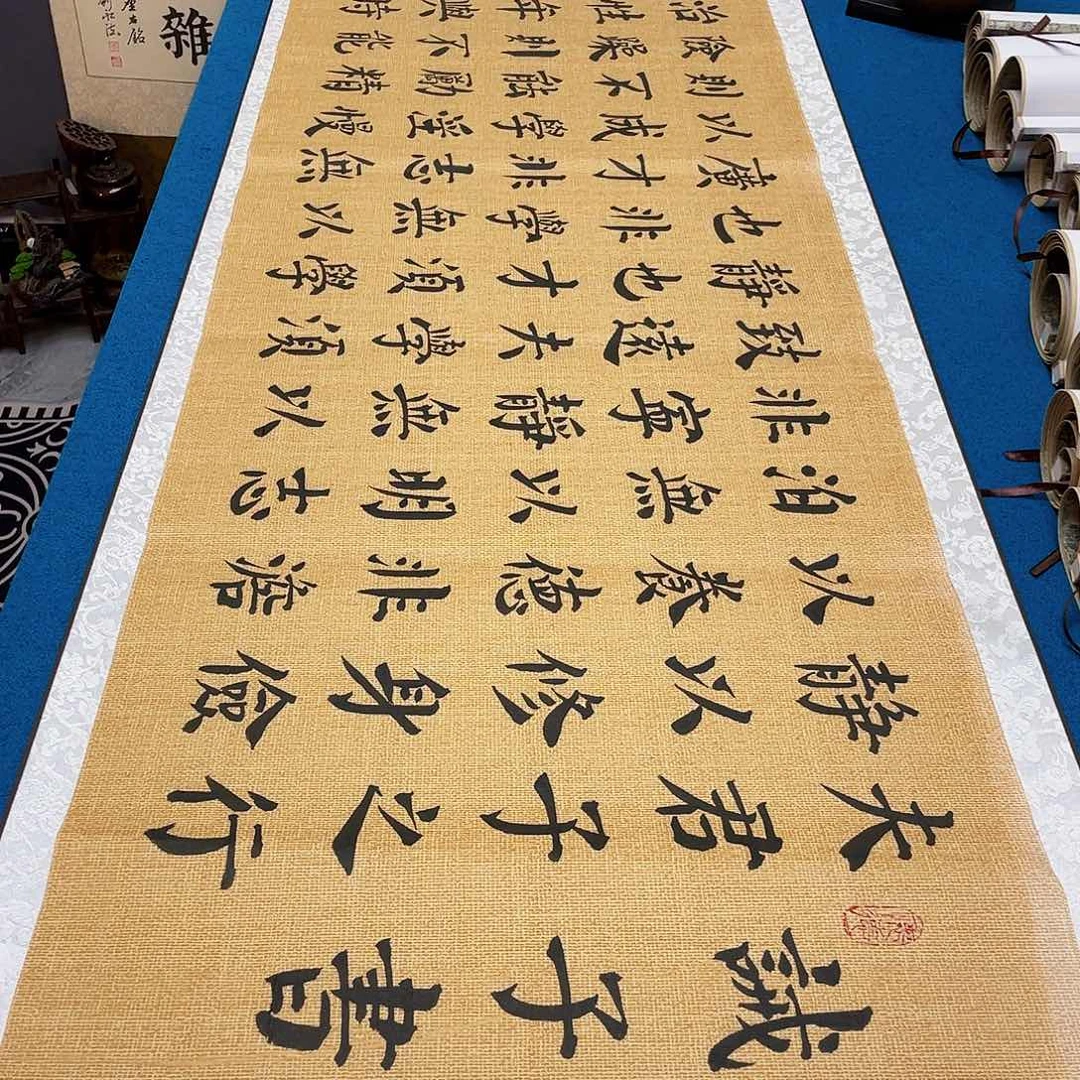 誡子書
夫君子之行
靜以修身儉
以養德非澹
泊無以明志
非寧靜無以
致遠夫學須
靜也才須學
也非學無以
廣才非志無
以成學淫慢
則不能勵精
險躁則不能
治性年與時
雜